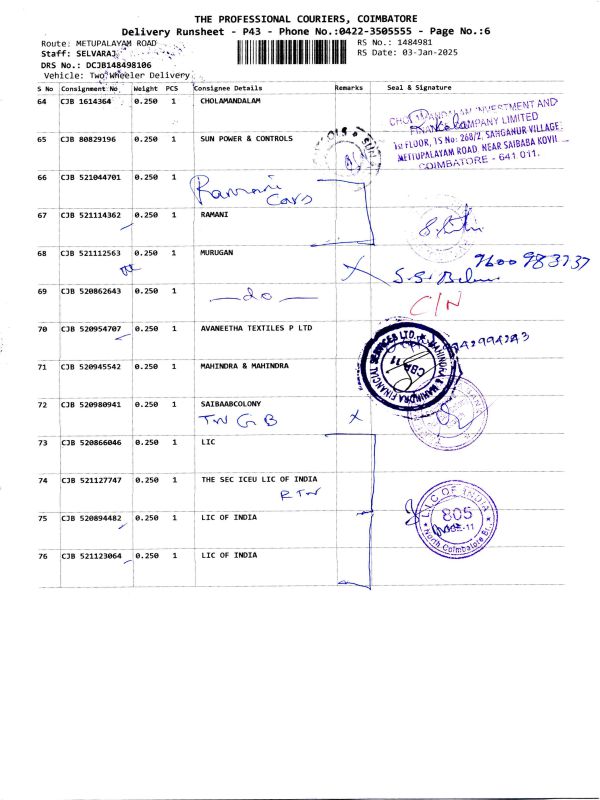 THE PROFESSIONAL COURIERS, COIMBATORE
Delivery Runsheet - P43 - Phone No.:0422-3505555 - Page No.:6
Route: METUPALAYAM ROAD RS No.: 1484981
Staff: SELVARAJ RS Date: 03-Jan-2025
DRS No.: DCJB148498106
Vehicle: Two Wheeler Delivery
S No Consignment No Weight PCS Consignee Details Remarks Seal & Signature
64 CJB 1614364 0.250 1 CHOLAMANDALAM
CHOLAMANDALAM INVESTMENT AND
FINANCE COMPANY LIMITED
1st FLOOR, TS No: 268/2, SANGANUR VILLAGE
METTUPALAYAM ROAD, NEAR SAIBABA KOVIL
COIMBATORE - 641 011.
65 CJB 80829196 0.250 1 SUN POWER & CONTROLS
66 CJB 521044701 0.250 1
Ramani
Cars
67 CJB 521114362 0.250 1 RAMANI
68 CJB 521112563 0.250 1 MURUGAN
9600983737
69 CJB 520862643 0.250 1 —do—
C/N
70 CJB 520954707 0.250 1 AVANEETHA TEXTILES P LTD
71 CJB 520945542 0.250 1 MAHINDRA & MAHINDRA
MAHINDRA & MAHINDRA FINANCIAL SERVICES LTD.
CBA 11
72 CJB 520980941 0.250 1 SAIBAABCOLONY
TNGB X
73 CJB 520866046 0.250 1 LIC
74 CJB 521127747 0.250 1 THE SEC ICEU LIC OF INDIA
RTN
75 CJB 520894482 0.250 1 LIC OF INDIA
L.I.C OF INDIA
805
CBE-11
North Coimbatore Br.
76 CJB 521123064 0.250 1 LIC OF INDIA